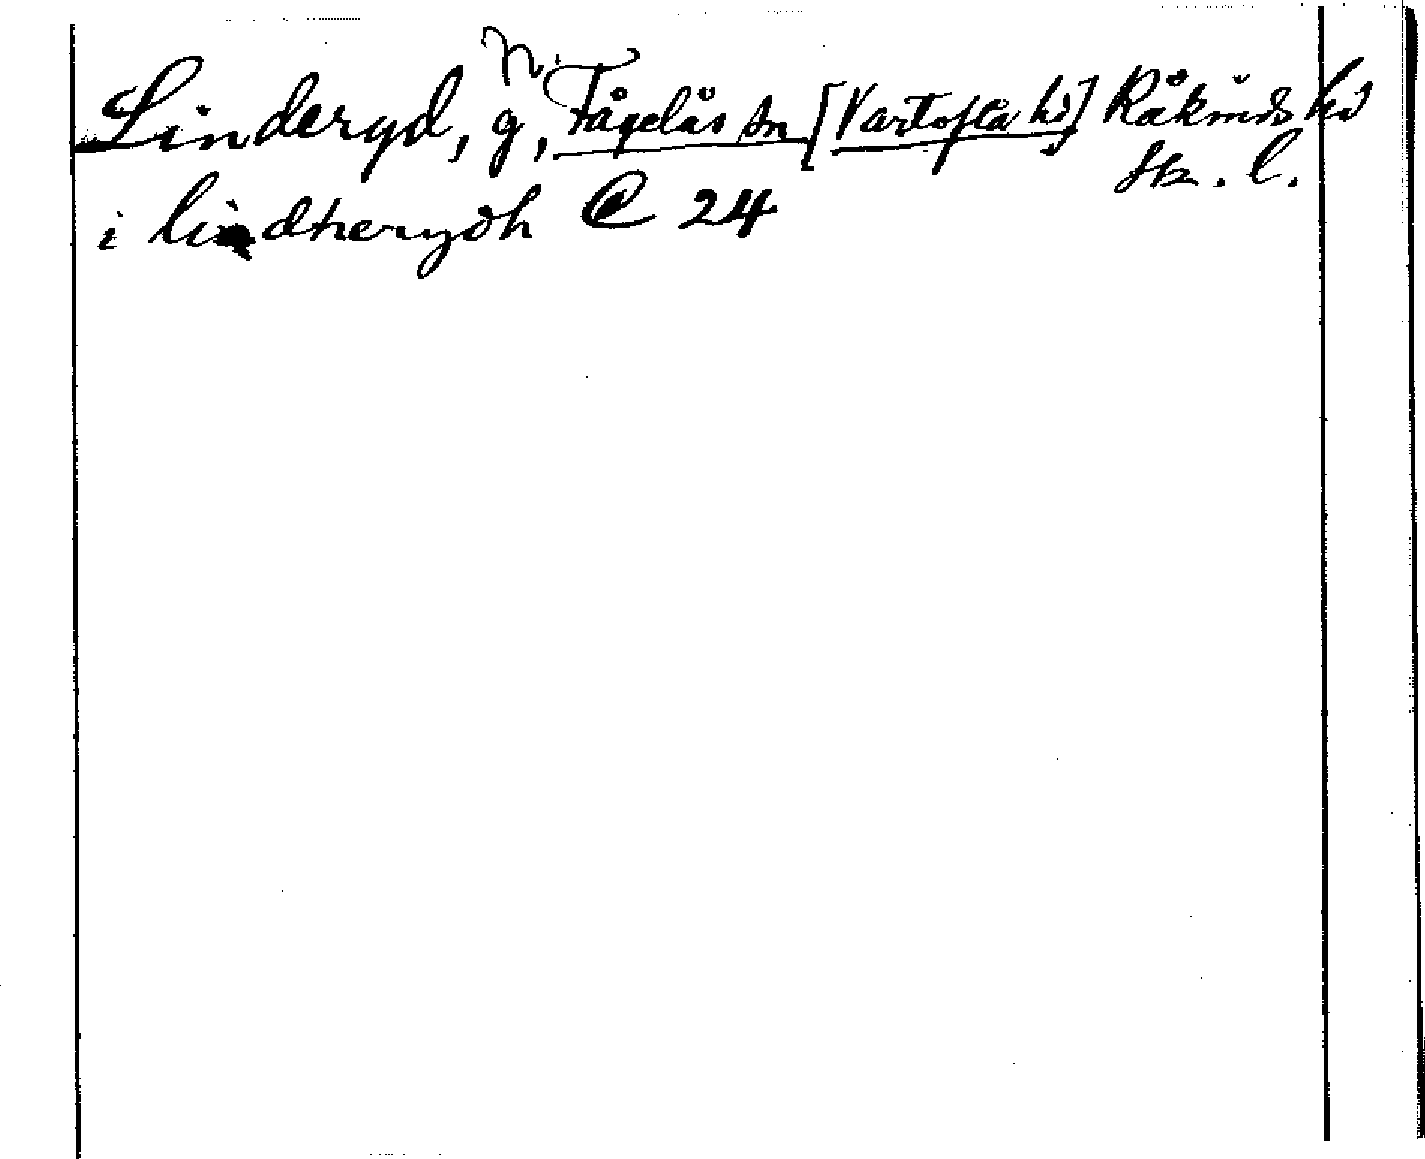 Linderyd, g, N. Fågelås sn [Vartofta hd] Kåkinds hd
Sk. l.
i lindherydh C 24